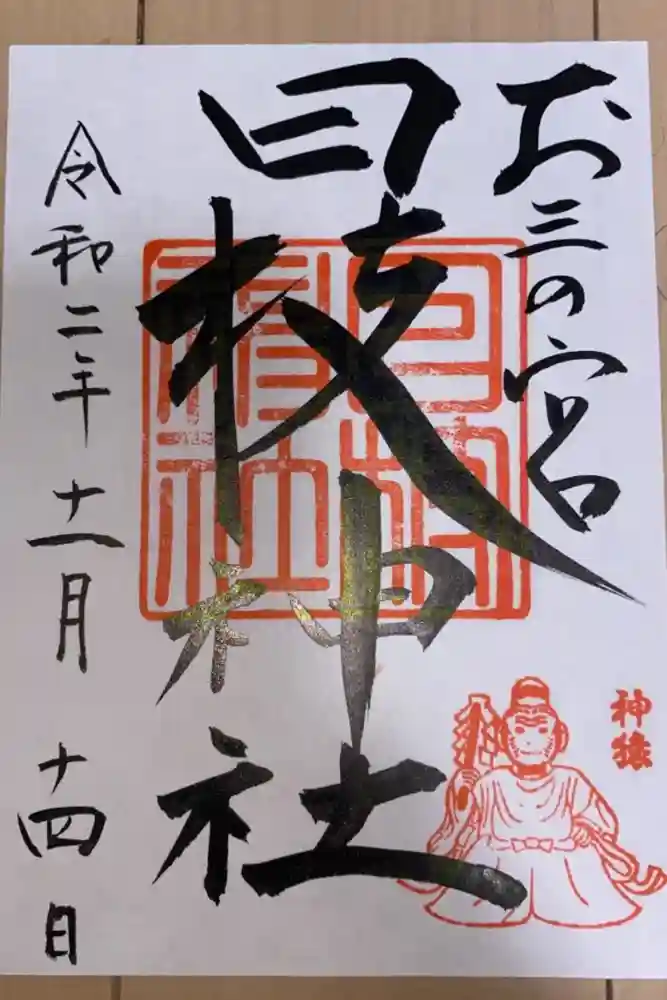 お三の宮
日枝神社
日枝神社
神猿
令和二年十一月十四日